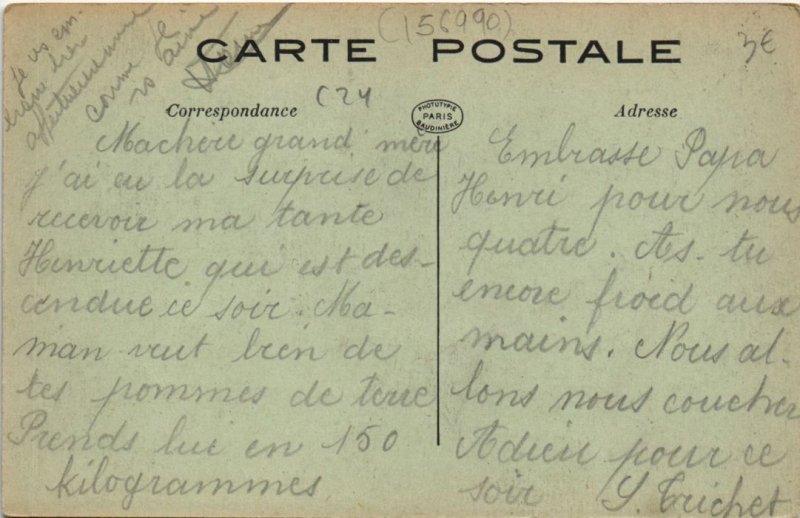 (156990)
3€
Je vs em-
brasse bien
affectueusement
comme je
vs aime
CARTE POSTALE
Correspondance
C24
PHOTOTYPIE
PARIS
BAUDINIÈRE
Adresse
Ma chère grand mère
j'ai eu la surprise de
recevoir ma tante
Henriette qui est des-
cendue ce soir. Ma-
man veut bien de
tes pommes de terre
Prends lui en 150
kilogrammes
Embrasse Papa
Henri pour nous
quatre. As-tu
encore froid aux
mains. Nous al-
lons nous coucher
Adieu pour ce
soir Y. Trichet